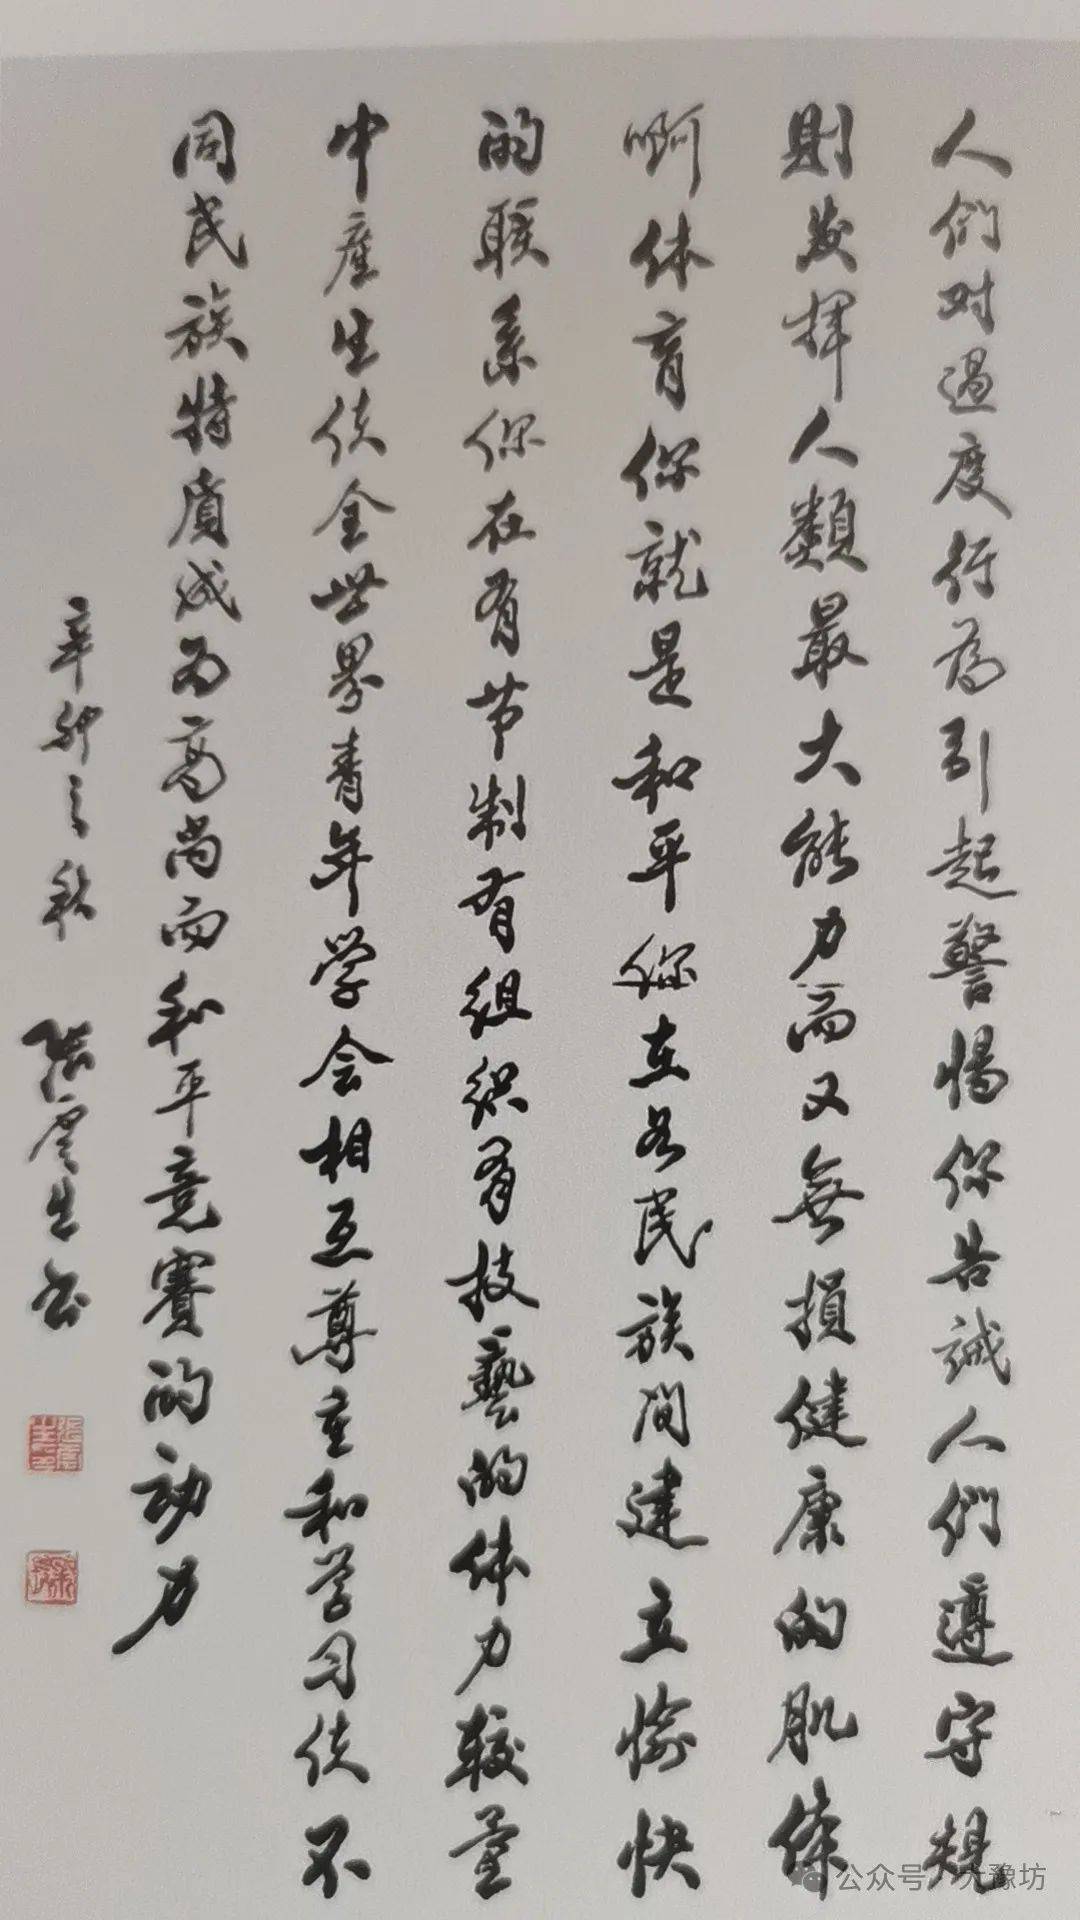 人们对過度行為引起警惕你告诫人們遵守規
則发揮人類最大能力而又無損健康的肌体
啊体育你就是和平你在各民族间建立愉快
的联系你在有节制有组织有技藝的体力較量
中産生使全世界青年学会相互尊重和学习使不
同民族特质成为高尚而和平竞賽的动力
辛卯之秋 張雲生书
公众号 大豫坊